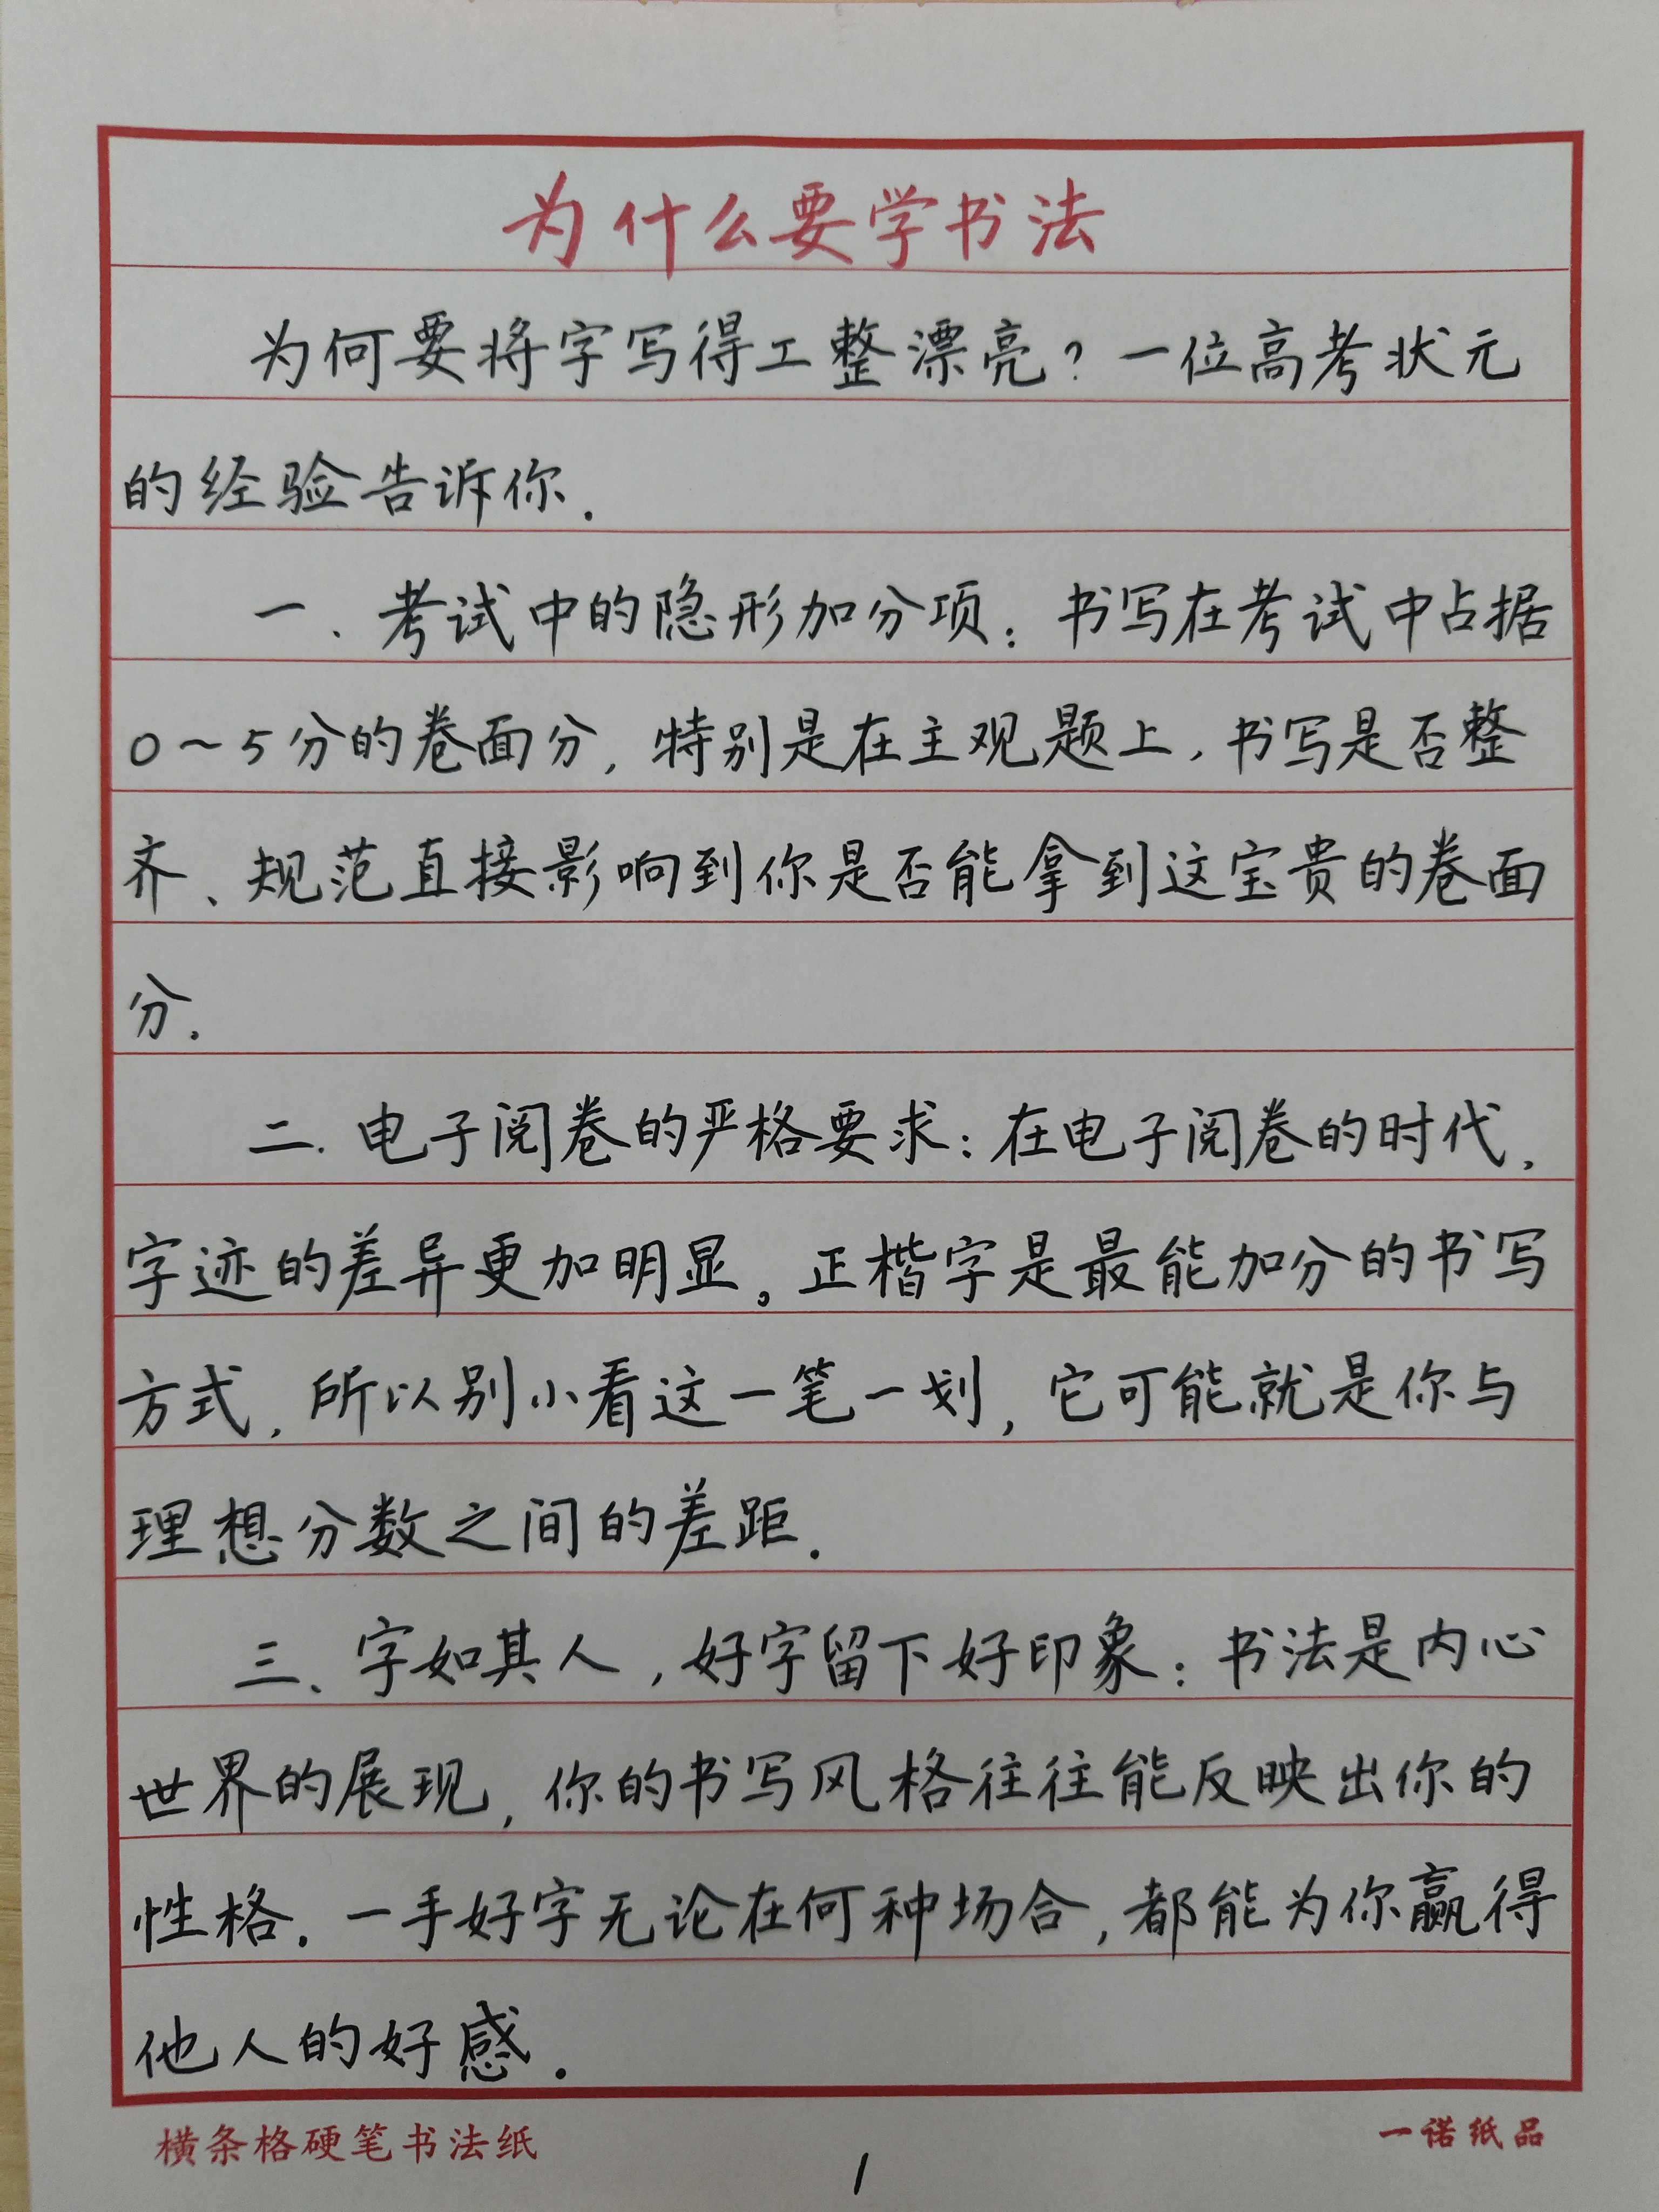 为什么要学书法
为何要将字写得工整漂亮?一位高考状元
的经验告诉你.
一、考试中的隐形加分项:书写在考试中占据
0~5分的卷面分,特别是在主观题上,书写是否整
齐、规范直接影响到你是否能拿到这宝贵的卷面
分.
二.电子阅卷的严格要求:在电子阅卷的时代,
字迹的差异更加明显。正楷字是最能加分的书写
方式,所以别小看这一笔一划,它可能就是你与
理想分数之间的差距.
三、字如其人,好字留下好印象:书法是内心
世界的展现,你的书写风格往往能反映出你的
性格.一手好字无论在何种场合,都能为你赢得
他人的好感.
横条格硬笔书法纸 一诺纸品
1